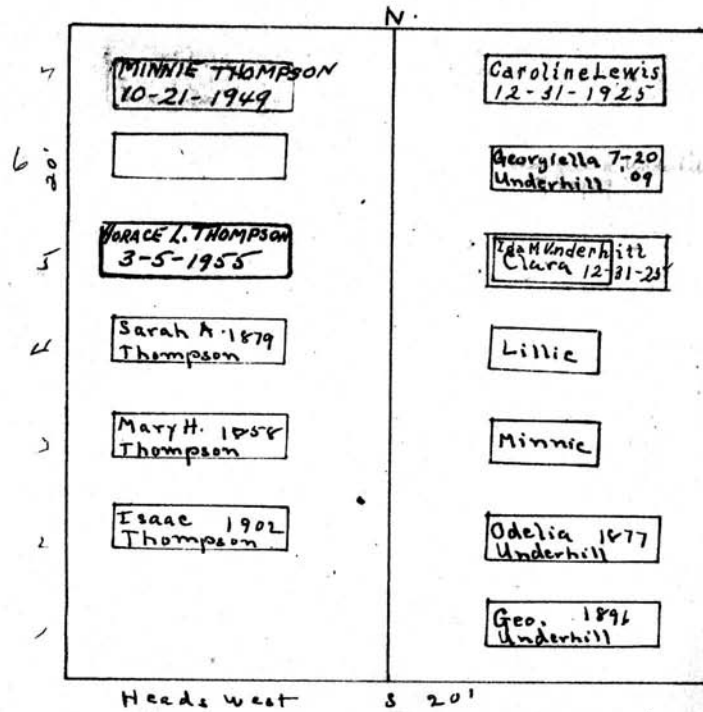 N.
7
MINNIE THOMPSON
10-21-1949
6
20'
HORACE L. THOMPSON
3-5-1955
5
Sarah A. 1879
Thompson
4
Mary H. 1858
Thompson
3
Isaac 1902
Thompson
2
1
Caroline Lewis
12-31-1925
Georgiella 7-20
Underhill .09
Ida M Underhill
Clara 12-31-25
Lillie
Minnie
Odelia 1877
Underhill
Geo. 1896
Underhill
Heads west S 20'